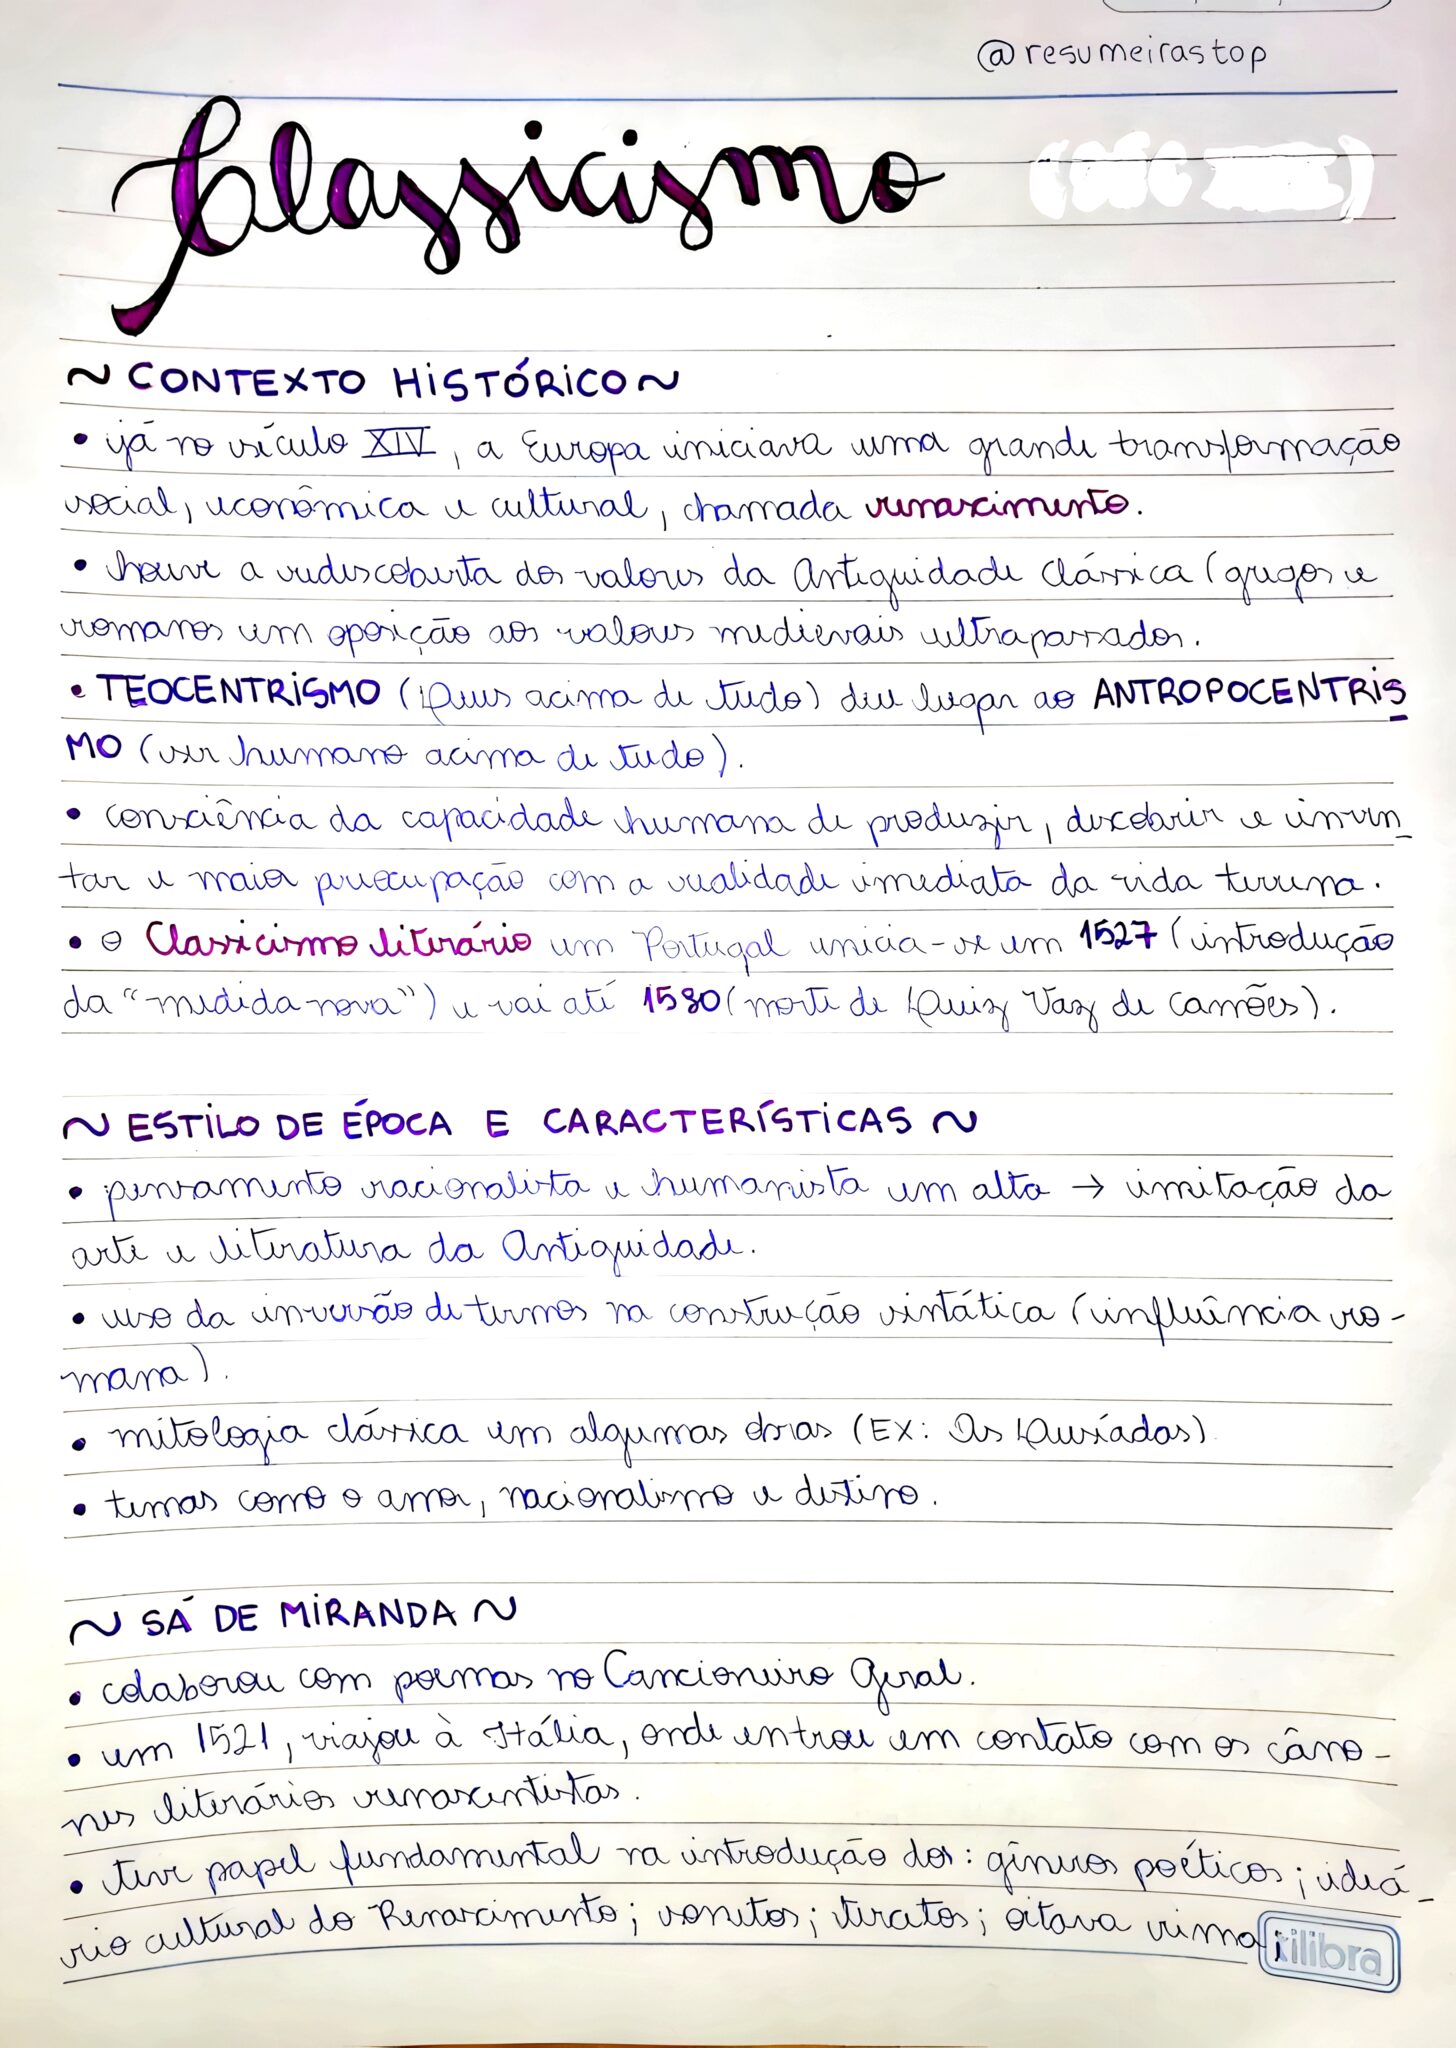 @resumeirastop
Classicismo
~ CONTEXTO HISTÓRICO ~
• já no século XIV, a Europa iniciava uma grande transformação
social, econômica e cultural, chamada renascimento.
• houve a redescoberta dos valores da Antiguidade Clássica (gregos e
romanos em oposição aos valores medievais ultrapassados.
• TEOCENTRISMO (Deus acima de tudo) deu lugar ao ANTROPOCENTRIS
MO (ser humano acima de tudo).
• consciência da capacidade humana de produzir, descobrir e inven_
tar e maior preocupação com a realidade imediata da vida terrena.
• o Classicismo literário em Portugal inicia-se em 1527 (introdução
da "medida nova") e vai até 1580 (morte de Luiz Vaz de Camões).
~ ESTILO DE ÉPOCA E CARACTERÍSTICAS ~
• pensamento racionalista e humanista em alta → imitação da
arte e literatura da Antiguidade.
• uso da inversão de termos na construção sintática (influência ro-
mana).
• mitologia clássica em algumas obras (EX: Os Lusíadas)
• temas como o amor, nacionalismo e destino.
~ SÁ DE MIRANDA ~
• colaborou com poemas no Cancioneiro Geral.
• em 1521, viajou à Itália, onde entrou em contato com os câno-
nes literários renascentistas.
• teve papel fundamental na introdução dos: gêneros poéticos; ideá_
rio cultural do Renascimento; sonetos; tercetos; oitava rima;
tilibra